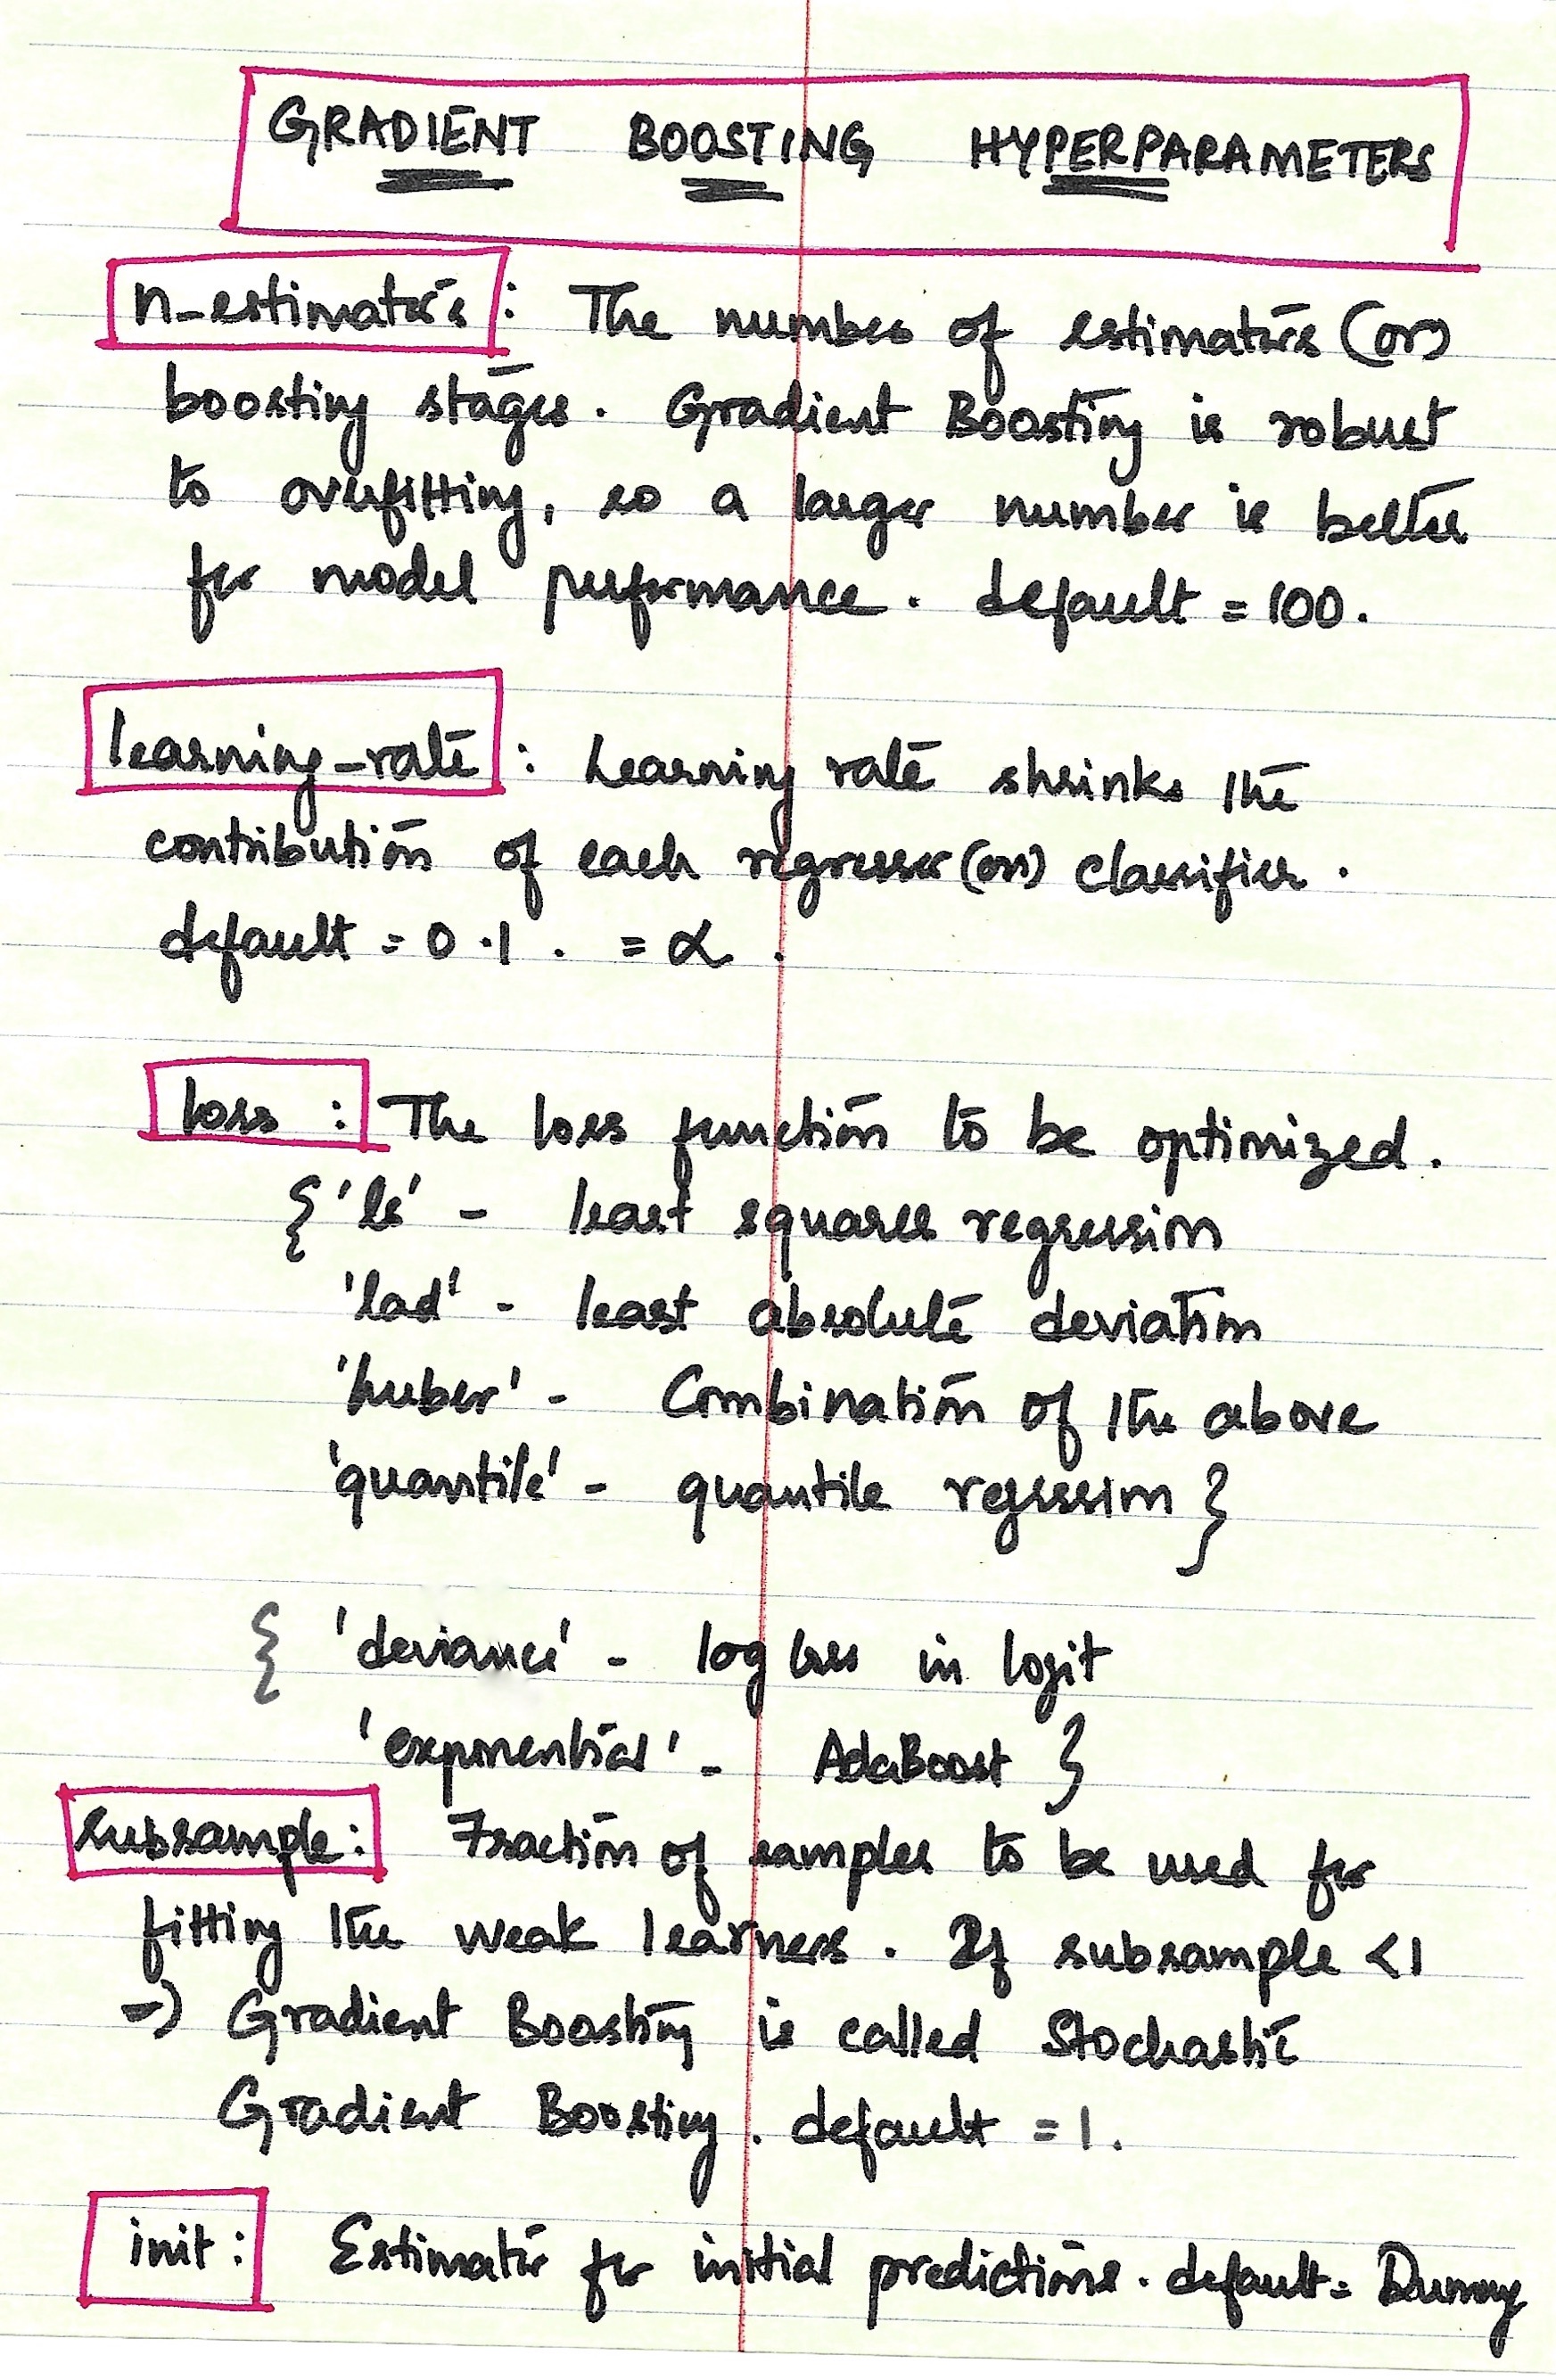 GRADIENT BOOSTING HYPERPARAMETERS
n-estimators : The number of estimators (or)
boosting stages. Gradient Boosting is robust
to overfitting, so a larger number is better
for model performance. default = 100.
learning-rate : Learning rate shrinks the
contribution of each regressor (or) classifier.
default = 0.1 . = α .
loss : The loss function to be optimized.
{'ls' - least squares regression
'lad' - least absolute deviation
'huber' - Combination of the above
'quantile' - quantile regression }
{ 'deviance' - log loss in logit
'exponential' - AdaBoost }
subsample: Fraction of samples to be used for
fitting the weak learners. If subsample <1
=) Gradient Boosting is called Stochastic
Gradient Boosting. default = 1.
init: Estimator for initial predictions. default = Dummy